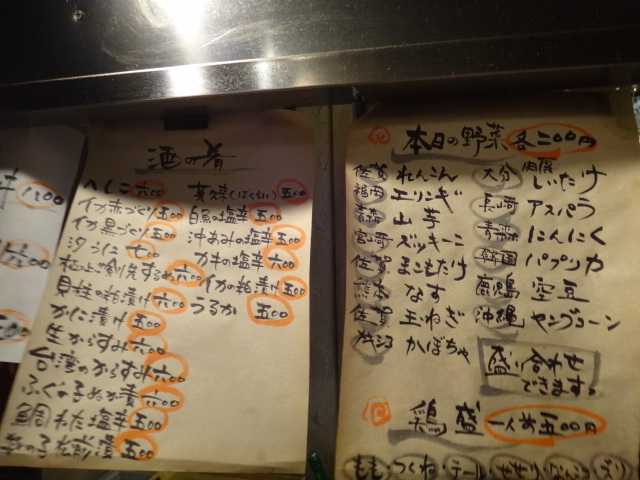 酒の肴
へしこ 六00
イカ赤づくり 五00
イカ黒づくり 五00
汐うに 七00
極上剣先するめ 六00
貝柱の粕漬け 六00
かに漬け 五00
生からすみ 六00
台湾のからすみ 六00
ふぐの子ぬか漬 六00
鯛わた塩辛 五00
数の子松前漬 五00
莫久来(ばくらい) 五00
白魚の塩辛 五00
沖あみの塩辛 五00
カキの塩辛 六00
イカの粕漬け 五00
うるか 五00
本日の野菜 各二00円
佐賀 れんこん
福岡 エリンギ
青森 山芋
宮崎 ズッキーニ
佐賀 まこもたけ
熊本 なす
佐賀 玉ねぎ
かぼちゃ
大分 肉厚しいたけ
長崎 アスパラ
青森 にんにく
韓国 パプリカ
鹿児島 空豆
沖縄 ヤングコーン
盛り合わせ
できます。
鶏盛 一人前五00円
もも・つくね・テール・せせり・なんこつ・ズリ